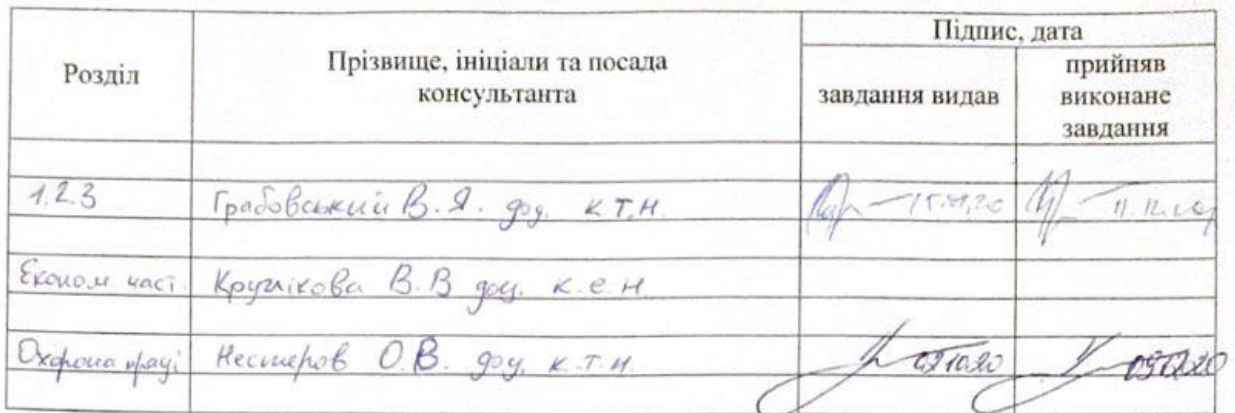 Розділ
Прізвище, ініціали та посада
консультанта
Підпис, дата
завдання видав
прийняв
виконане
завдання
1.2.3 Грабовський В.Я. доц. к.т.н.
Економ част. Круглікова В.В доц. к.е.н.
Охорона праці Нестеров О.В. доц. к.т.н. 02.10.20